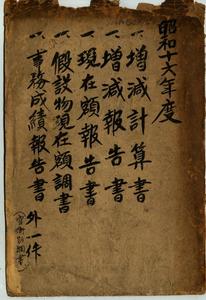 昭和十六年度
一、増減計算書
一、増減報告書
一、現在額報告書
一、假設物現在額調書
一、事務成績報告書
外一件